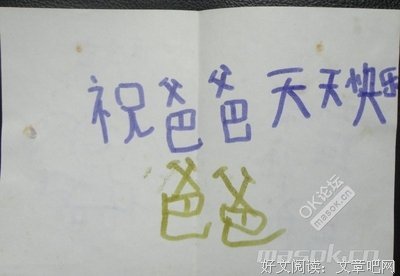 祝爸爸天天快乐
爸爸
OK论坛
masok.cn
masok.cn
好文阅读：文章吧网